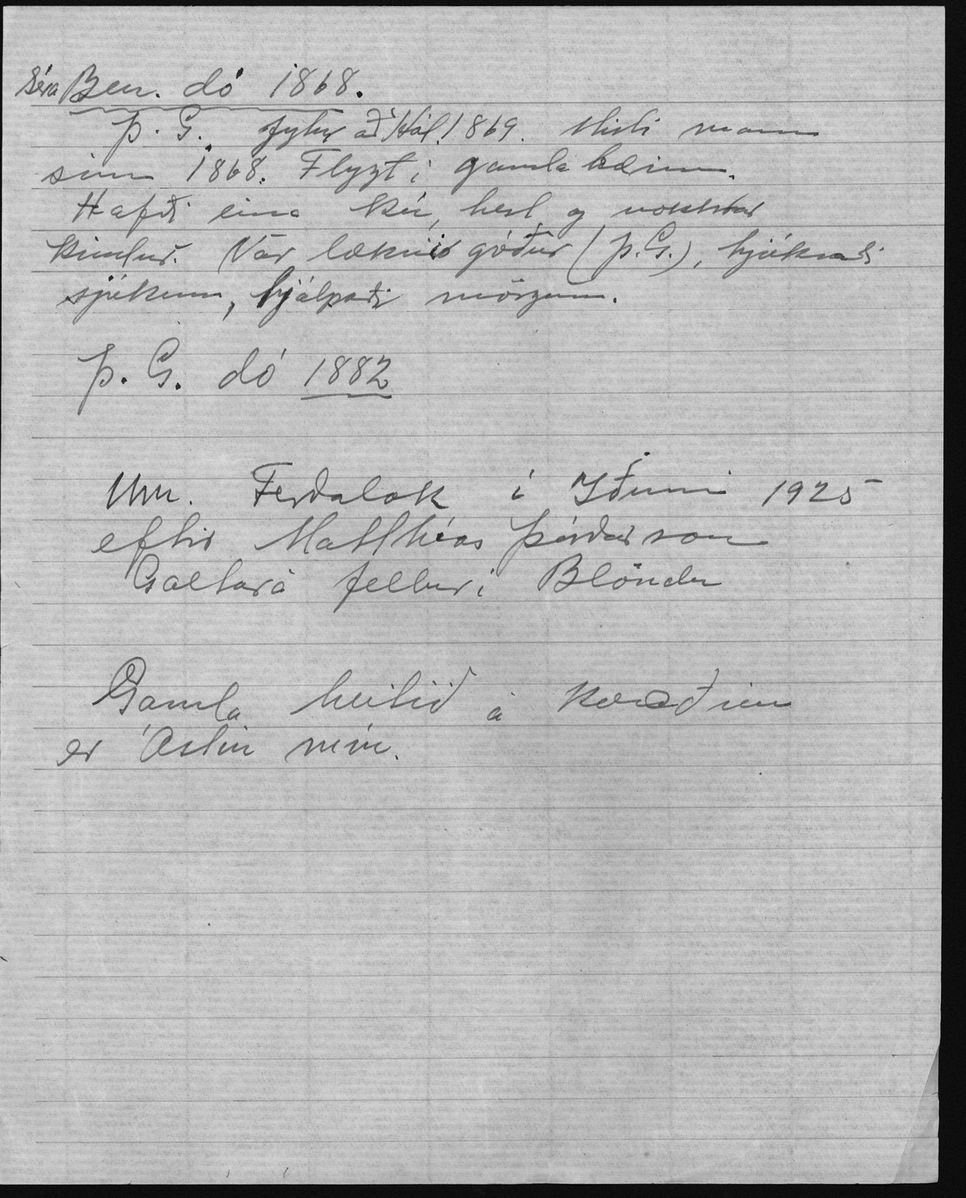 séra Ben. dó 1868.
Þ. G. flytur að Hól. 1869. Misti mann
sinn 1868. Flyzt í gamla bæinn.
Hafði eina kú, hest og nokkrar
kindur. Var læknir góður (Þ.G.), hjúkraði
sjúkum, hjálpaði mörgum.
Þ. G. dó 1882
Um. Ferðalok í Iðunni 1925
eftir Matthías Þórðarson
Galtará fellur í Blöndu
Gamla heitið á kvæðinu
er Ástin mín.